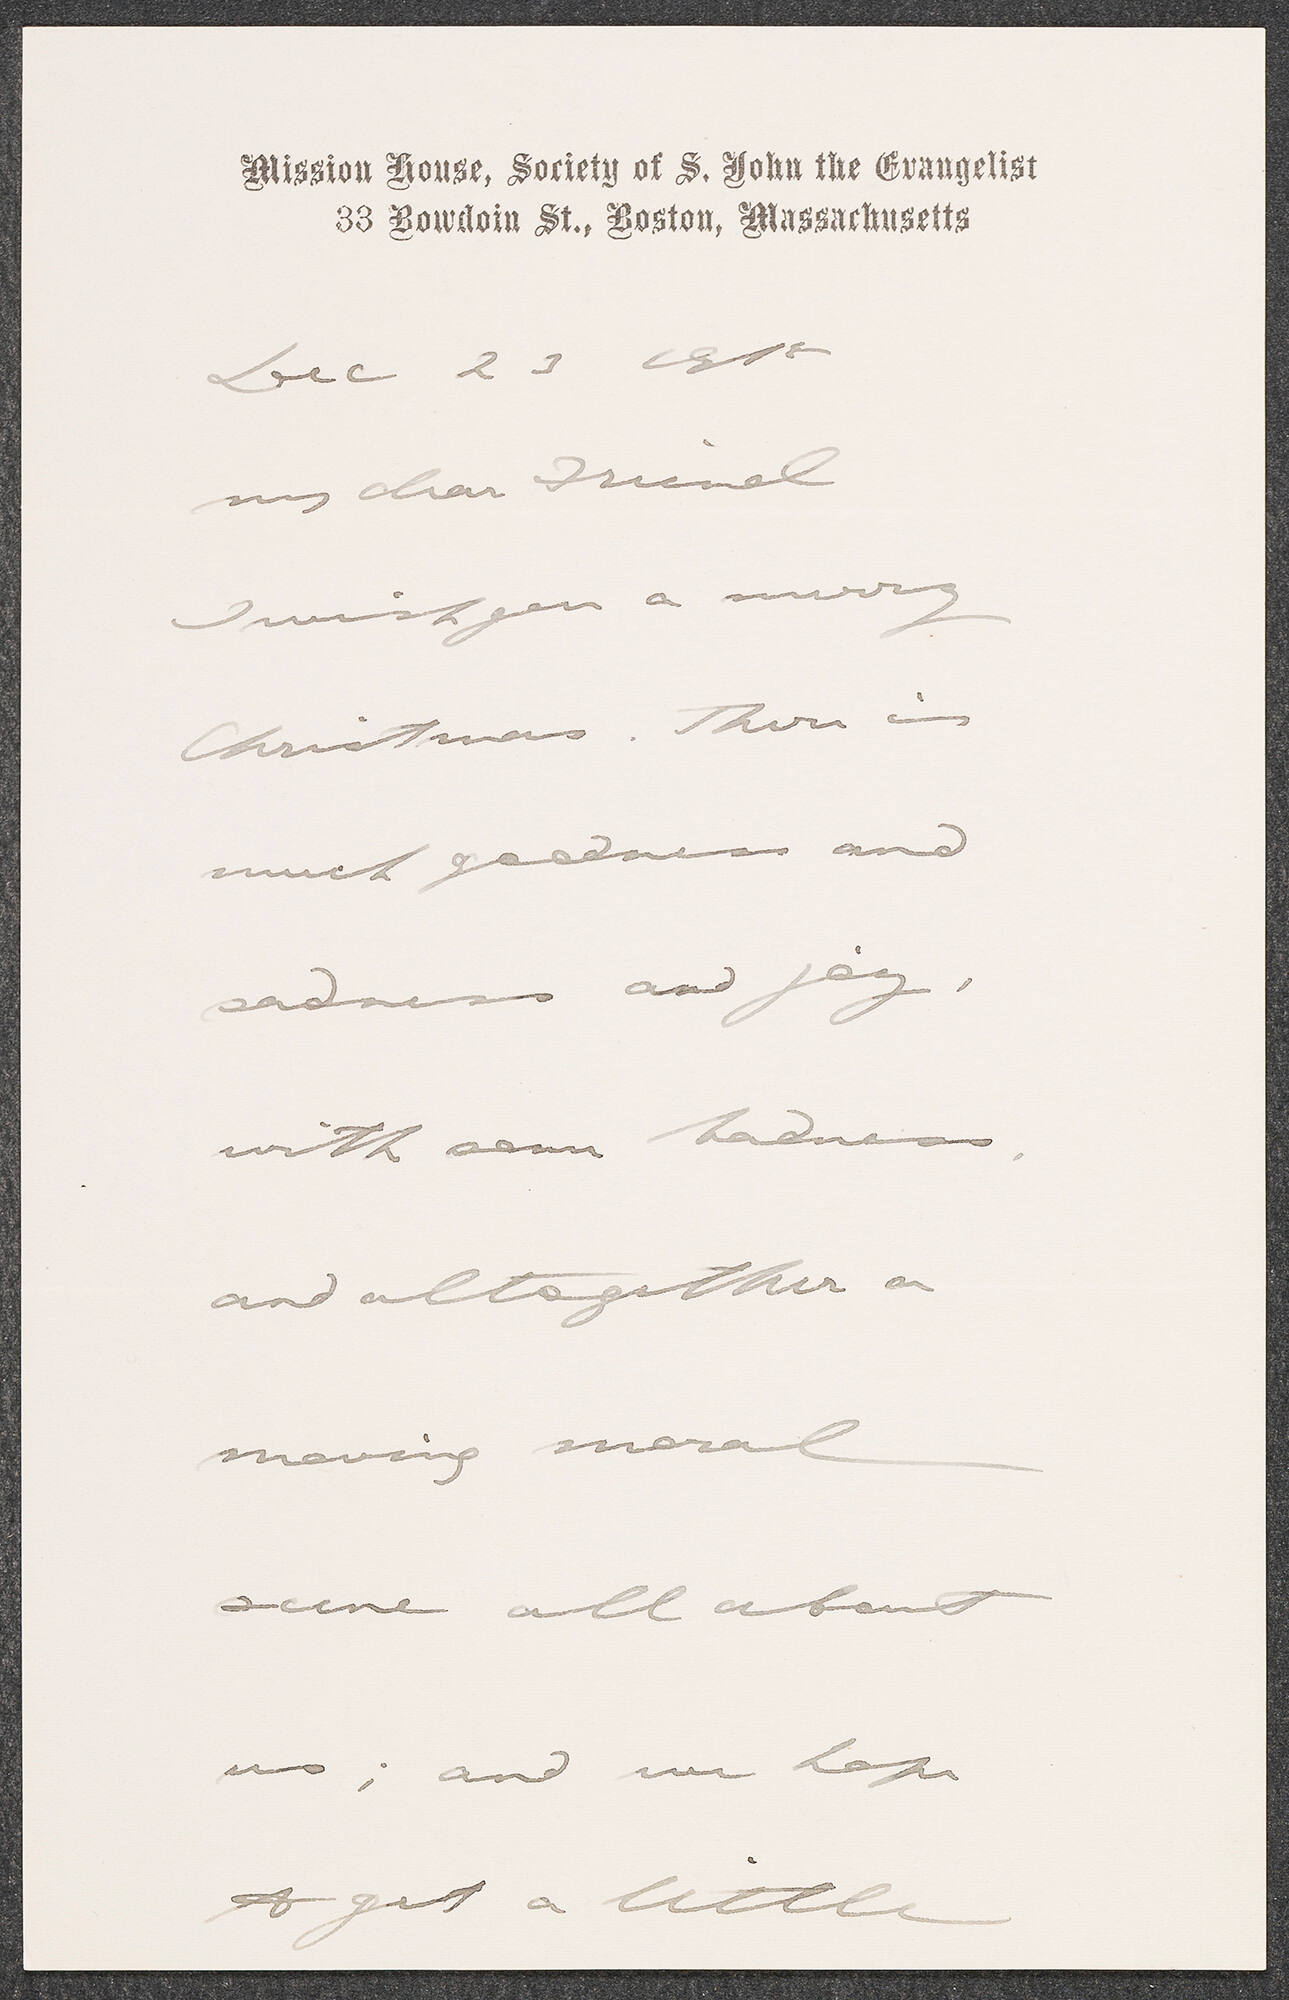 Mission House, Society of S. John the Evangelist
33 Bowdoin St., Boston, Massachusetts
Dec 23
my dear Friend
I wish you a merry
Christmas. There is
much goodness and
sadness and joy,
with some badness,
and altogether a
moving moral
scene all about
us; and we hope
to get a little